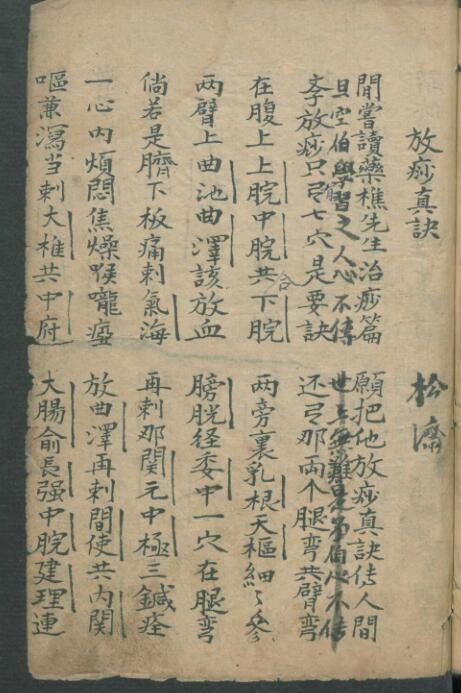 放痧真訣 松
閒嘗讀藥樵先生治痧篇 願把他放痧真訣传人間
且空伯學習之人心不传 世上無難足伯心不传
放痧只弓七穴是要訣 还弓那两个腿弯共臂弯
在腹上上脘中脘共下脘 两旁裏乳根天樞細々參
两臂上曲池曲澤該放血 膀胱经委中一穴在腿弯
倘若是臍下板痛刺氣海 再刺那関元中極三鍼痊
一心内煩悶焦燥喉嚨瘂 放曲澤再刺間使共内関
嘔兼瀉当刺大椎共中府 大腸俞長强中脘建理連